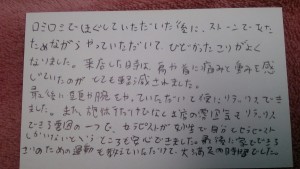 ロミロミでほぐしていただいた後に、ストーンであた
ためながらやっていただいて、ひどかったこりがよく
なりました。来店した時は、肩や首に痛みと重みを感
じていたのが とても軽く感じれました。
最後に頭や腕をやっていただいて更にリラックスできま
した。また、施術を受けるだけでなくお店の雰囲気も リラックス
できる雰囲気の一つで、セラピストが女性で
しかいないというところも安心できました。最後に家でできる
ための運動も教えていただけて、大満足の時間でした。